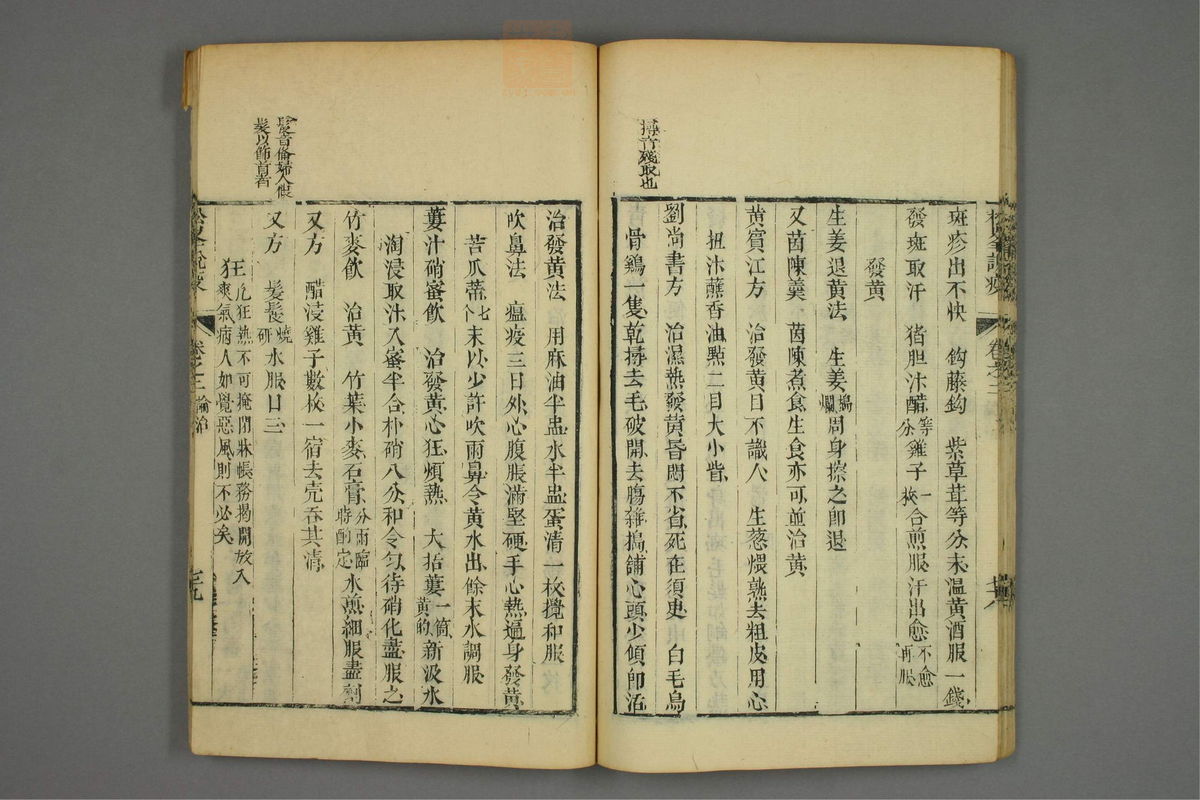 斑疹出不快 鈎藤鈎 紫草茸等分末温黄酒服一錢
發斑取汗 猪胆汁醋等分雞子一枚合煎服汗出愈不愈再服
發黄
生姜退黄法 生姜搗爛周身擦之即退
又茵陳羹 茵陳煮食生食亦可並治黄
黄賓江方 治發黄目不識人 生葱煨熟去粗皮用心
扭汁蘸香油點二目大小眥
劉尚書方 治濕熱發黄昏悶不省死在須臾 白毛烏
骨鷄一隻乾撏去毛破開去腸雜搗鋪心頭少傾即活
撏音殘取也
卷之三
治發黄法 用麻油半盅水半盅蛋清一枚攪和服
吹鼻法 瘟疫三日外心腹脹滿堅硬手心熱遍身發黄
苦瓜蒂七个末以少許吹兩鼻令黄水出餘末水調服
蔞汁硝蜜飲 治發黄心狂煩熱 大括蔞一箇黄的新汲水
淘浸取汁入蜜半合朴硝八分和令匀待硝化盡服之
竹麥飲 治黄 竹葉小麥石膏分兩臨時酌定水煎細服盡劑
又方 醋浸雞子數枚一宿去壳吞其清
又方 髮髲燒研水服日三
狂凡狂熱不可掩閉牀帳務揭開放入
爽氣病人如覺惡風則不必矣
婦人假
髮以飾首者
松峯説疫 卷之三 論治 七九